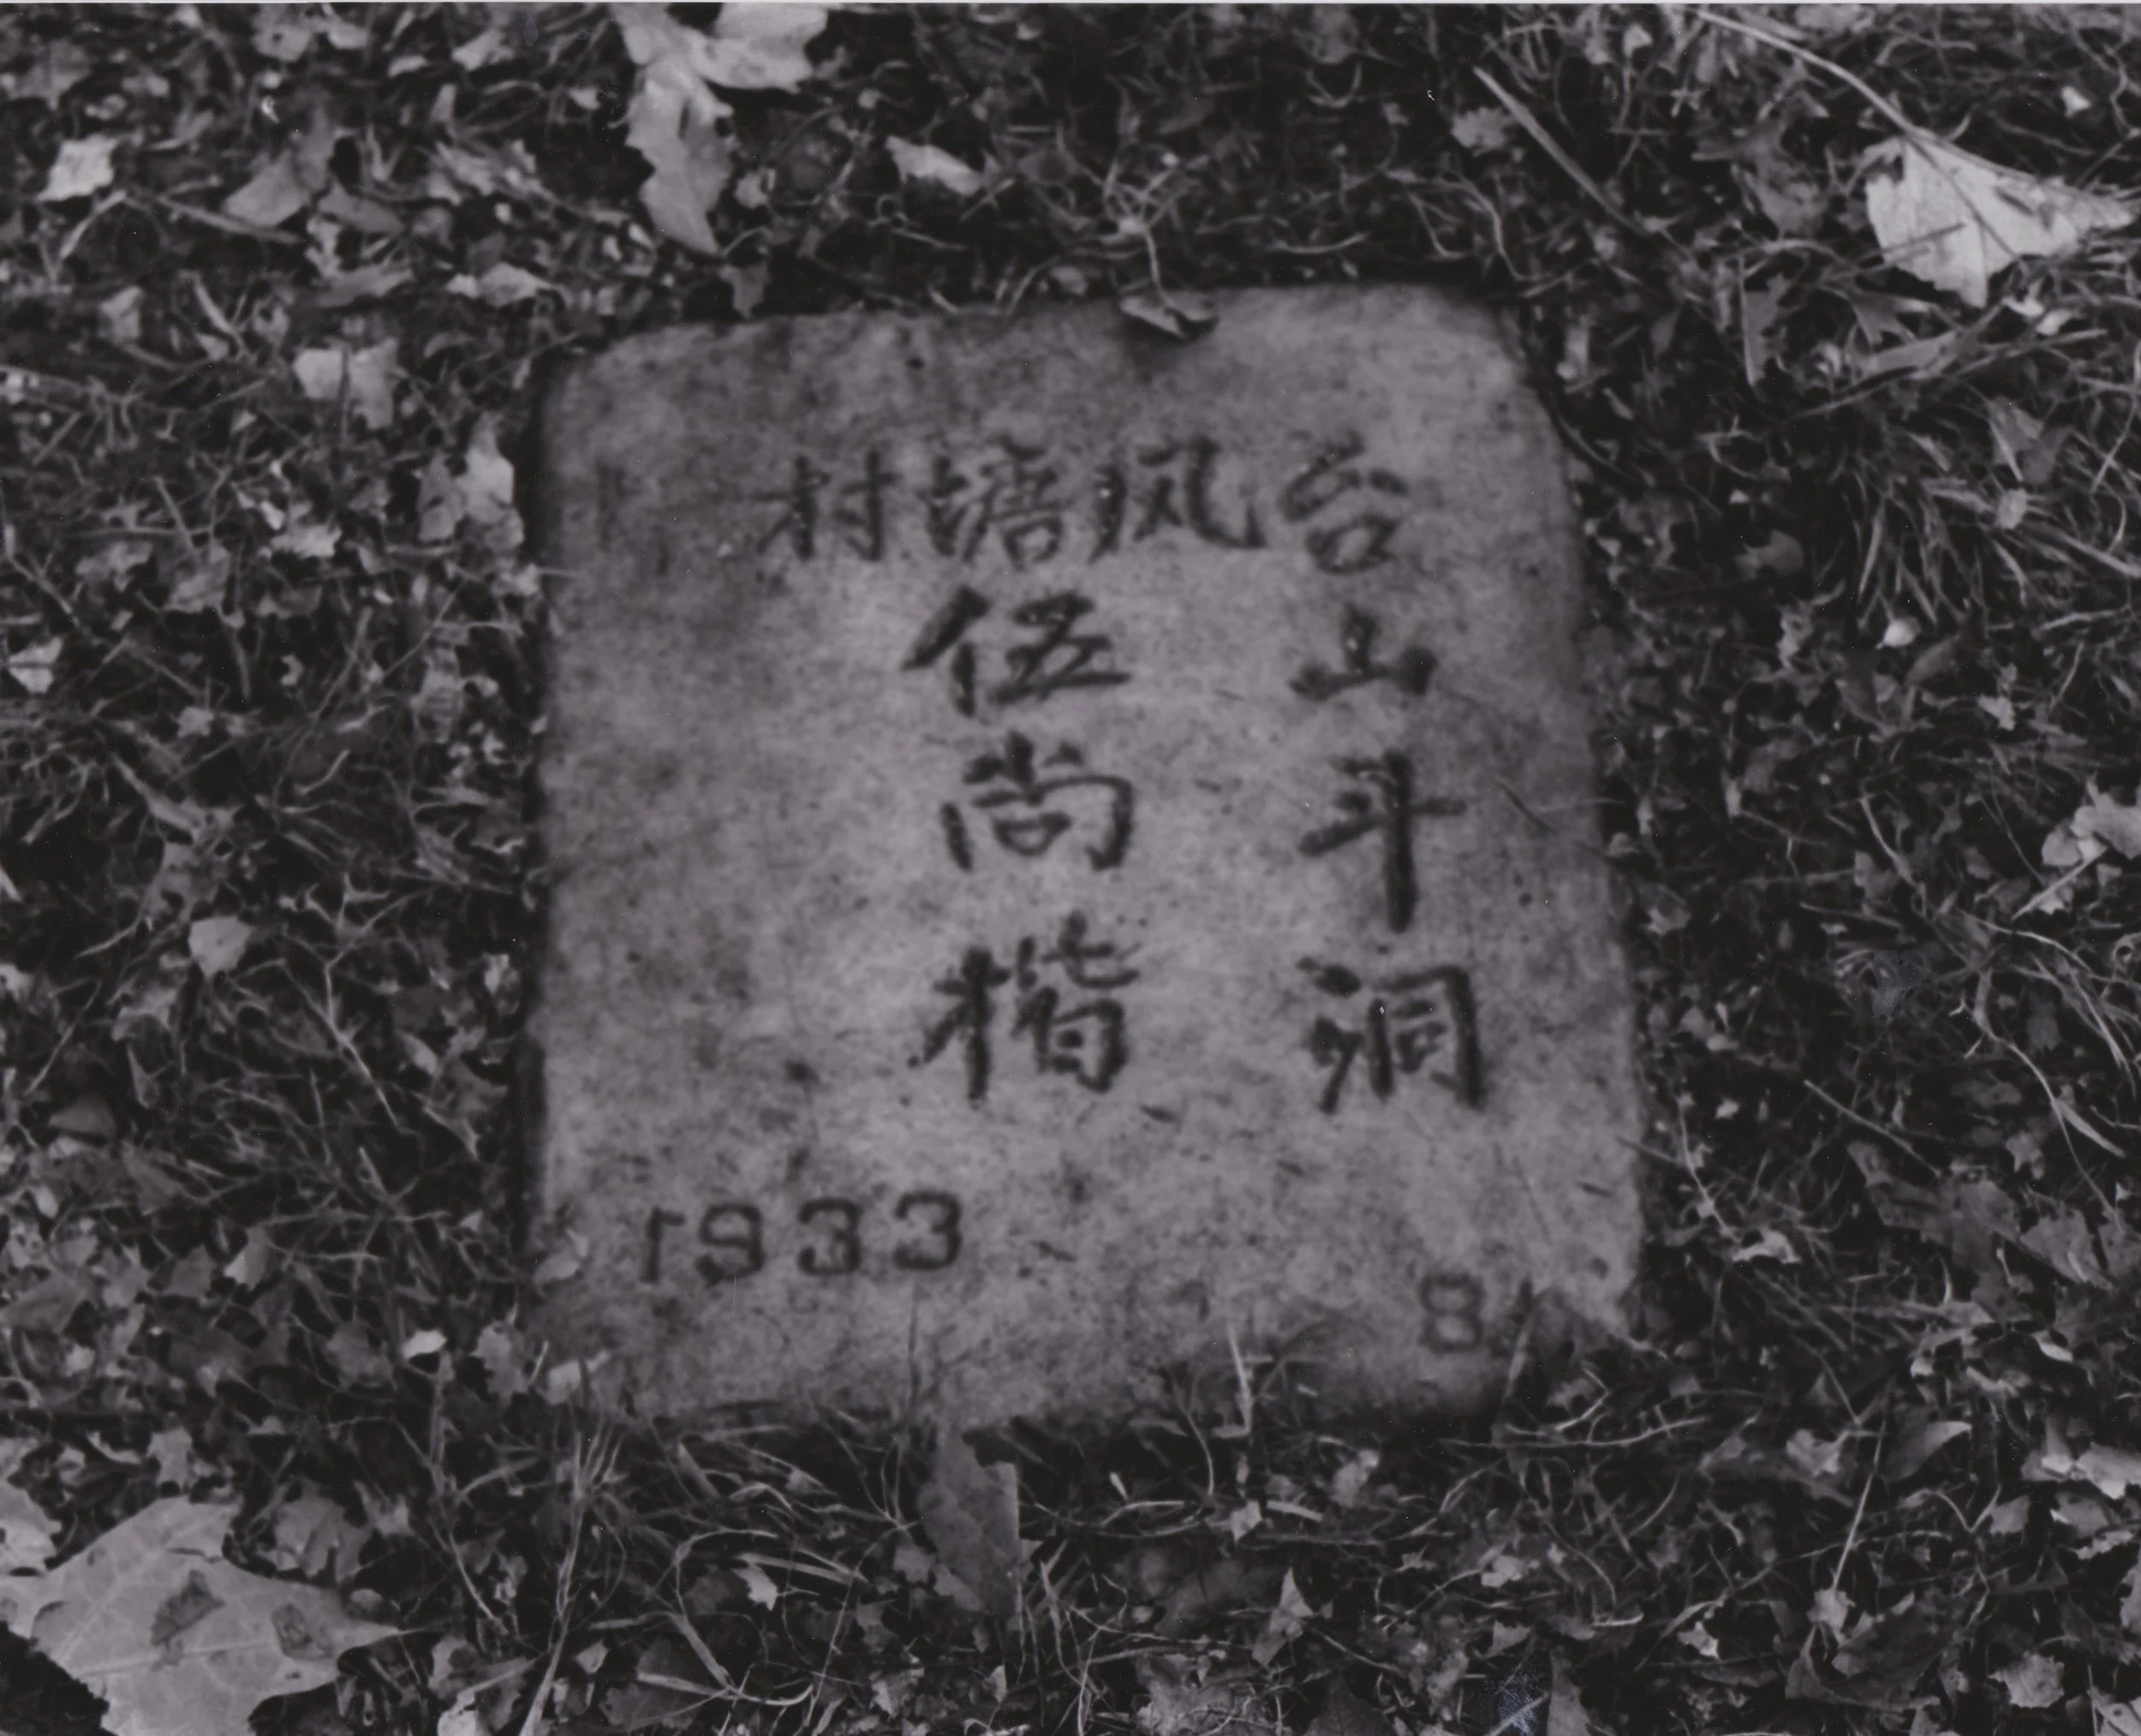 台山斗洞
风塘村
伍尚楷
1933
81